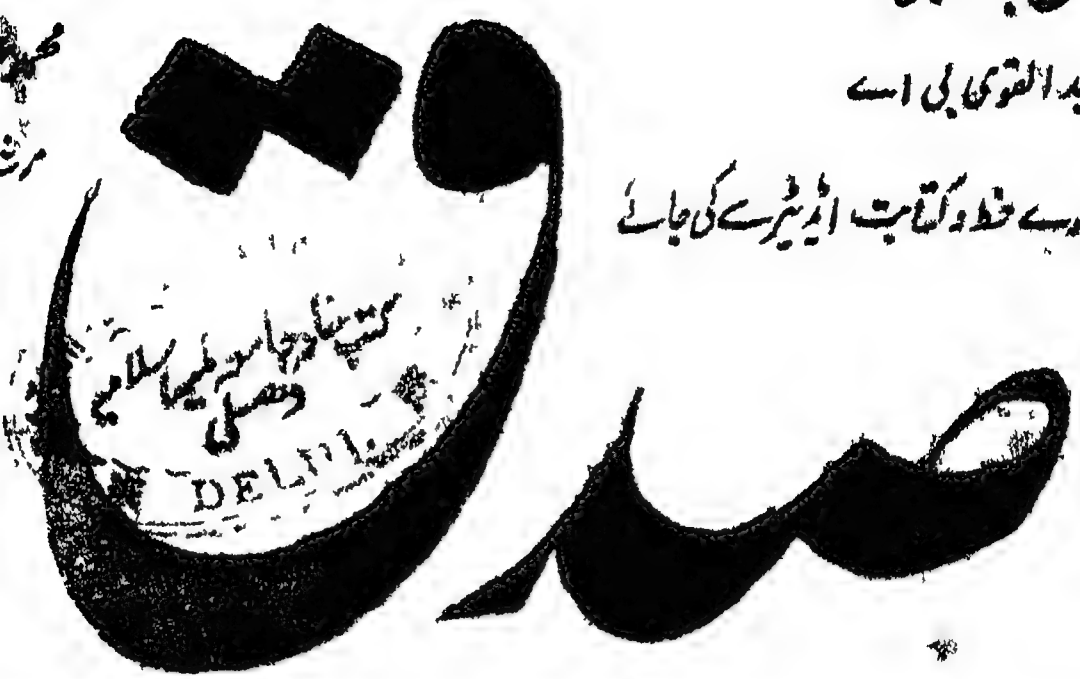 بد القوی بی اے
خط و کتابت ایڈیٹر سے کی جائے
صدق
کتب خانہ جامعہ ملیہ اسلامیہ
دہلی
DELHI.